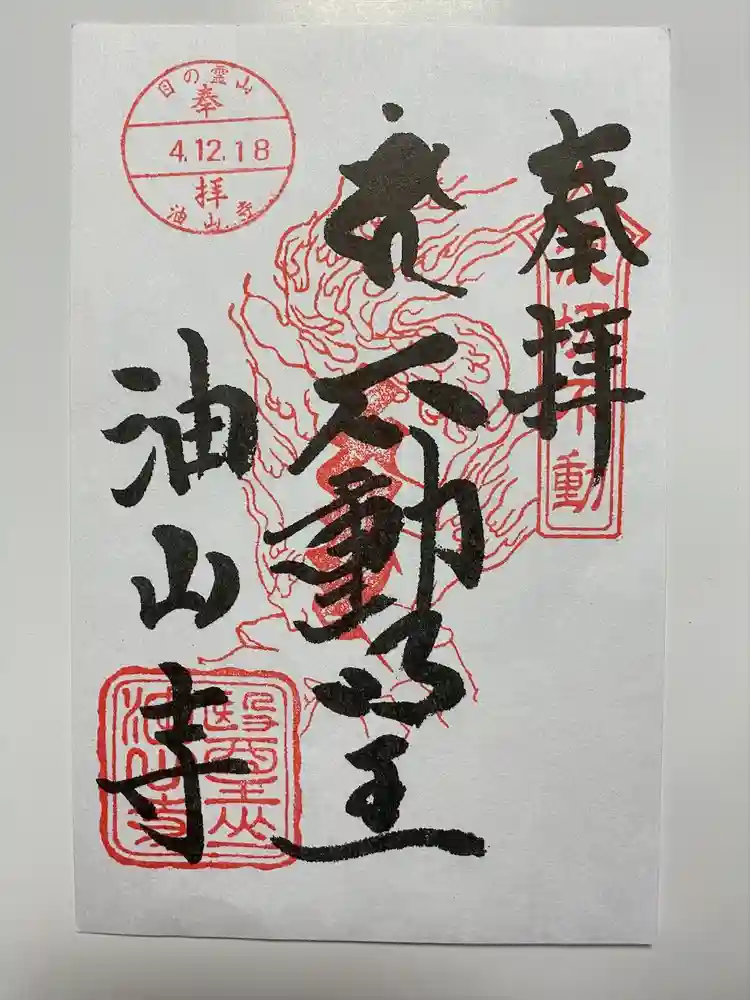 奉拝
不動明王
油山寺
目の霊山
奉
4.12.18
拝
油山寺
医王山
油山寺